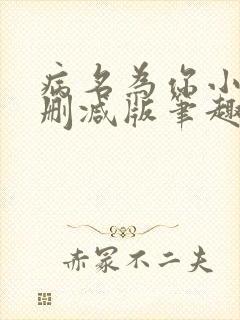 病名为你小
删减版笔趣
赤冢不二夫